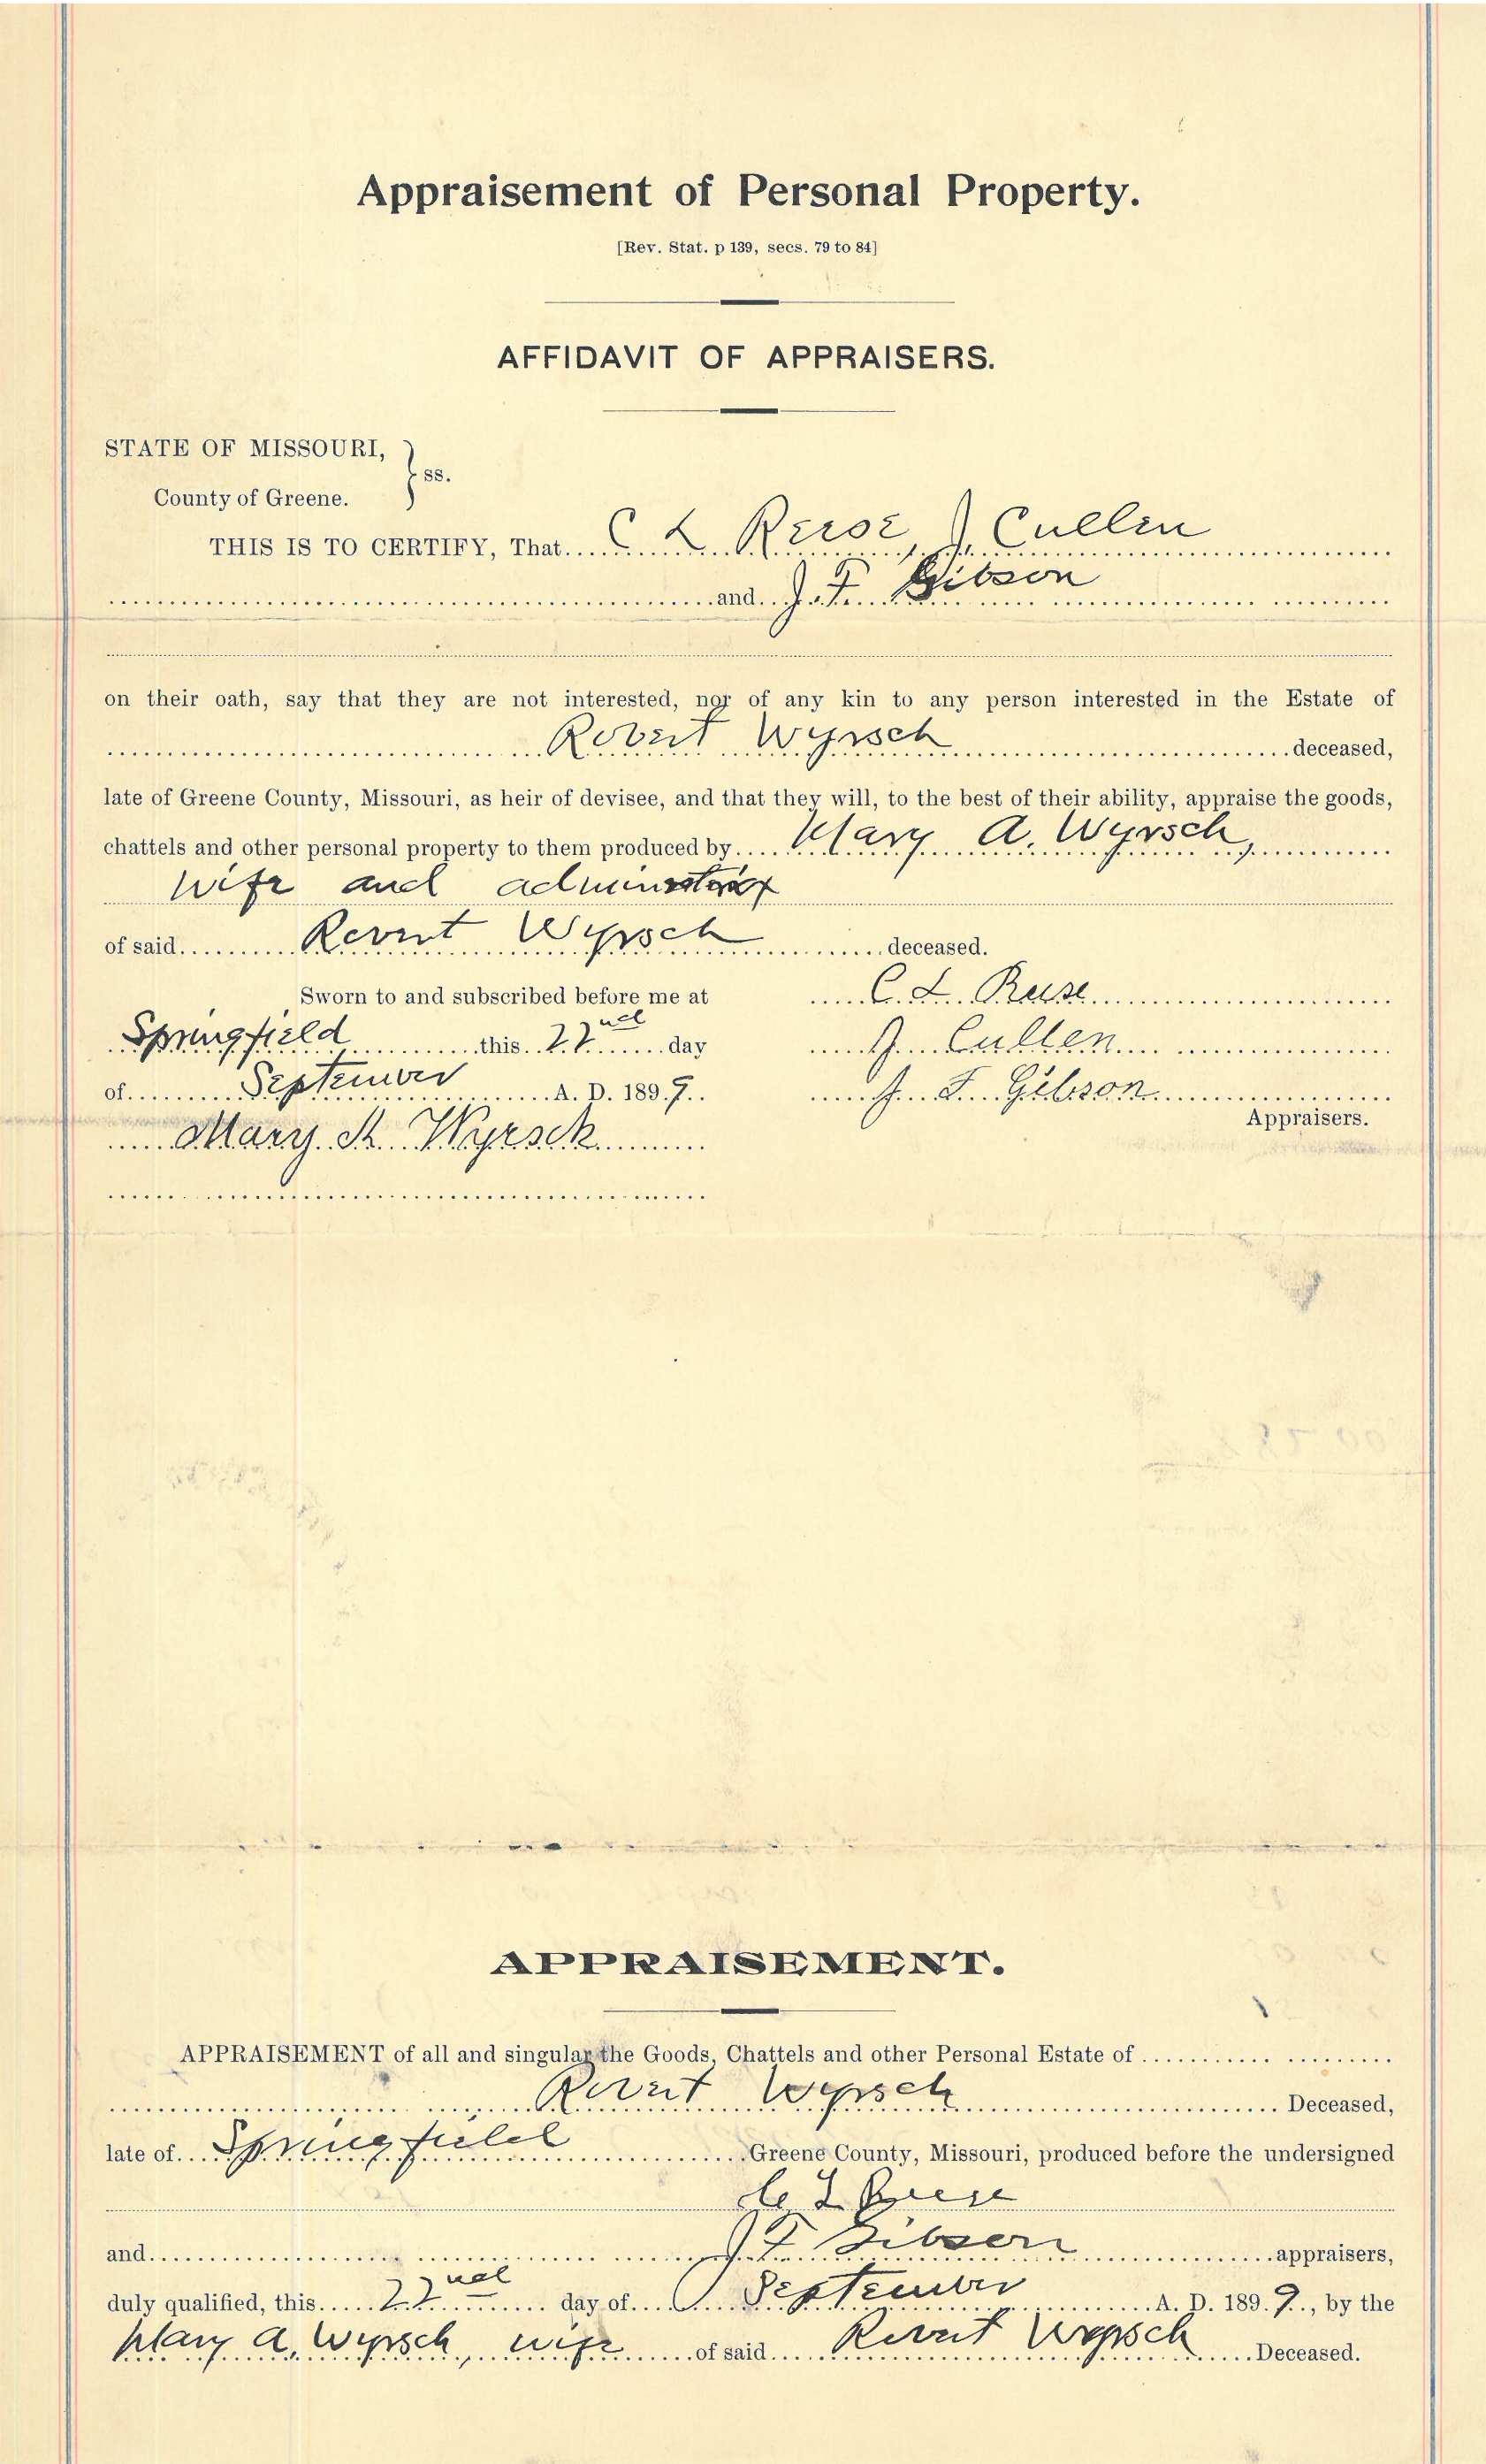 Appraisement of Personal Property.
[Rev. Stat. p 139, secs. 79 to 84]
AFFIDAVIT OF APPRAISERS.
STATE OF MISSOURI,
ss.
County of Greene.
THIS IS TO CERTIFY, That C L Reese, J. Cullen
and J. F. Gibson
on their oath, say that they are not interested, nor of any kin to any person interested in the Estate of
Robert Wyrsch deceased,
late of Greene County, Missouri, as heir of devisee, and that they will, to the best of their ability, appraise the goods,
chattels and other personal property to them produced by Mary A. Wyrsch,
wife and administratrix
of said Robert Wyrsch deceased.
Sworn to and subscribed before me at
Springfield this 22nd day
of September A. D. 1899.
Mary A. Wyrsch
C. L. Reese
J. Cullen
J. F. Gibson
Appraisers.
APPRAISEMENT.
APPRAISEMENT of all and singular the Goods, Chattels and other Personal Estate of
Robert Wyrsch Deceased,
late of Springfield Greene County, Missouri, produced before the undersigned
C L Reese
and J F Gibson appraisers,
duly qualified, this 22nd day of September A. D. 1899, by the
Mary A. Wyrsch, wife of said Robert Wyrsch Deceased.